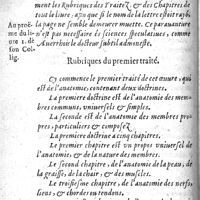 ment les Rubriques des Traitez, & des Chapitres de
tout le liure, aƶn que si le nom de la lettre estoit raƶé,
la page ne semble demeurer muette. Ce par auanture
n'est pas necessaire és sciences speculatiues, comme
Auerrhois le docteur subtil admoneste.
Au proë-
me du li-
ure 1. de
son Col-
lig.
Rubriques du premier traité.
CY commence le premier traité de cet œuure, qui est
de l'Anatomie, contenant deux doctrines.
La premiere doctrine est de l'anatomie des mem
bres communs, vniuersels & simples.
La seconde est de l'anatomie des membres pro
pres, particuliers & composez.
La premiere doctrine a cinq chapitres.
Le premier chapitre est vn propos vniuersel de
l'anatomie, & de la nature des membres.
Le second chapitre, de l'anatomie de la peau, de
la graisse, de la chair, & des muscles.
Le troisiesme chapitre, de l'anatomie des nerfs,
liens, & chordes ou tendons.